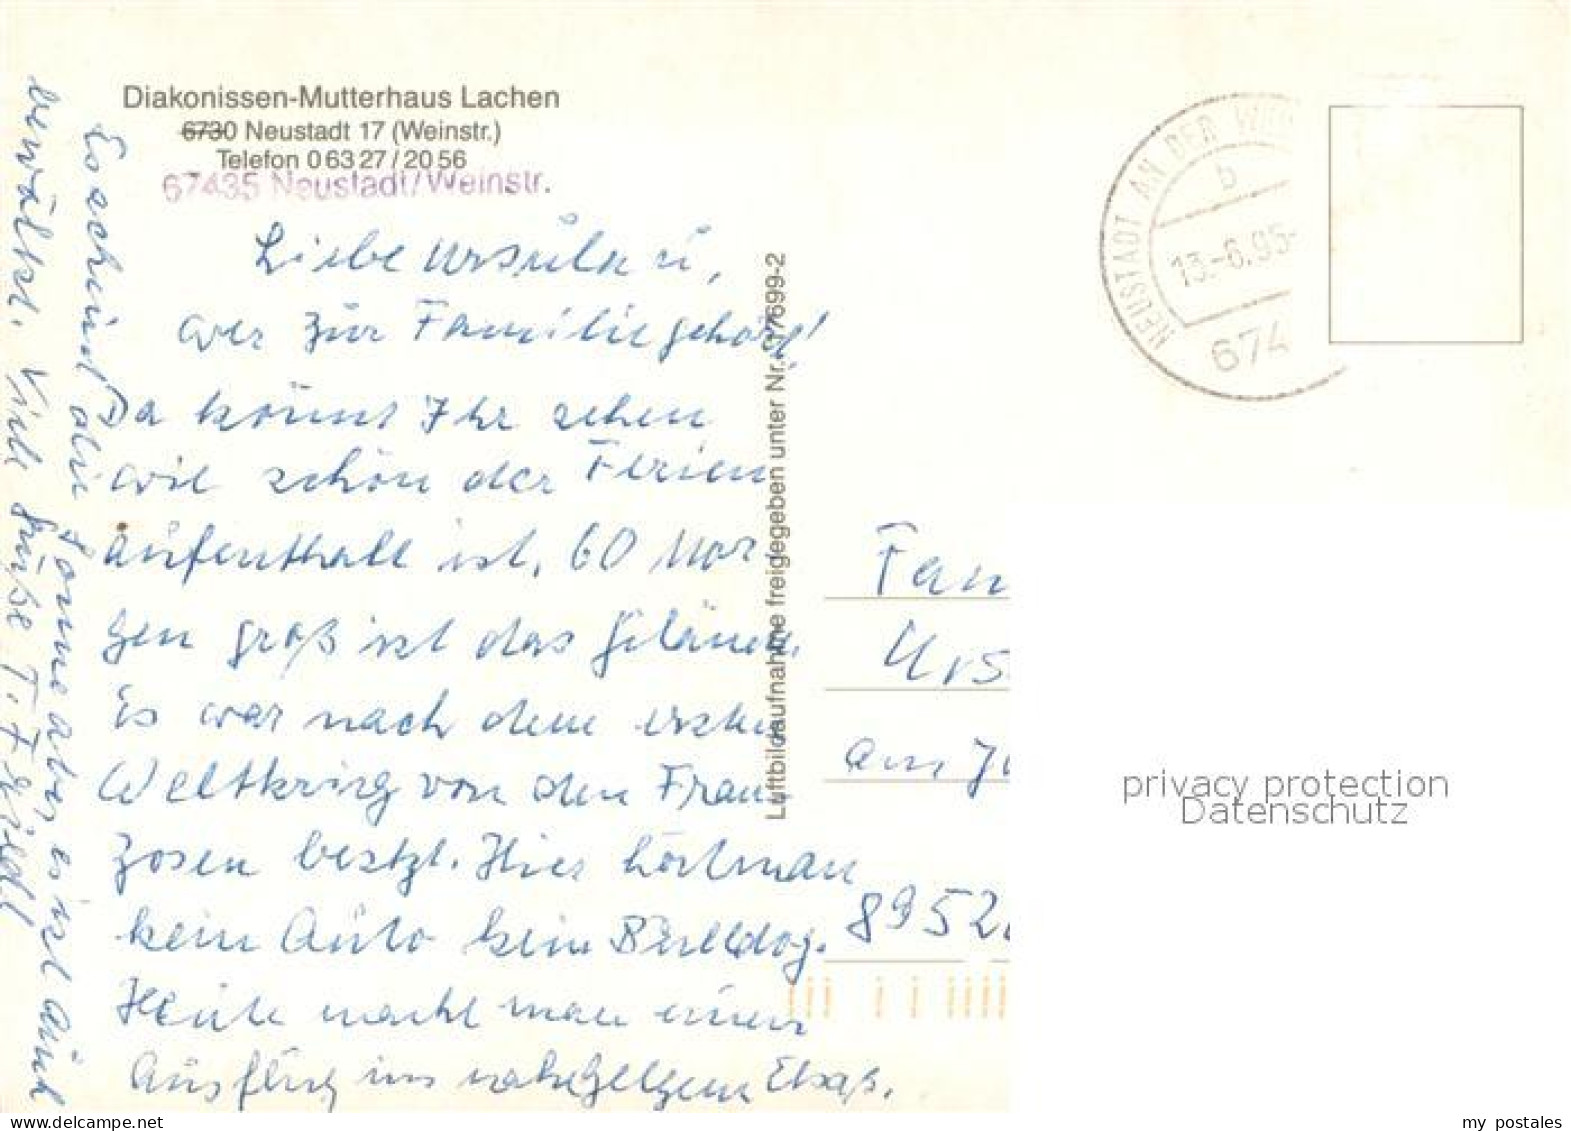 Diakonissen-Mutterhaus Lachen
6730 Neustadt 17 (Weinstr.)
Telefon 0 63 27 / 20 56
67435 Neustadt/Weinstr.
Liebe Ursula u,
wer zur Familie gehört!
Da könnt Ihr sehen
wie schön der Ferien
aufenthalt ist. 60 Mor
gen groß ist das Gelände.
Es war nach dem ersten
Weltkrieg von den Fran
zosen besetzt. Hier hört man
kein Auto kein Bulldog.
Heute macht man einen
Ausflug ins nahegelegene Elsaß.
Es scheint die Sonne aber, es ist auch
bewölkt. Viele Grüße T.
Luftbildaufnahme freigegeben unter Nr.
NEUSTADT AN DER WEIN
b
13.-6.95-
674
Fam
Urs
am
8952
privacy protection
Datenschutz
my postales